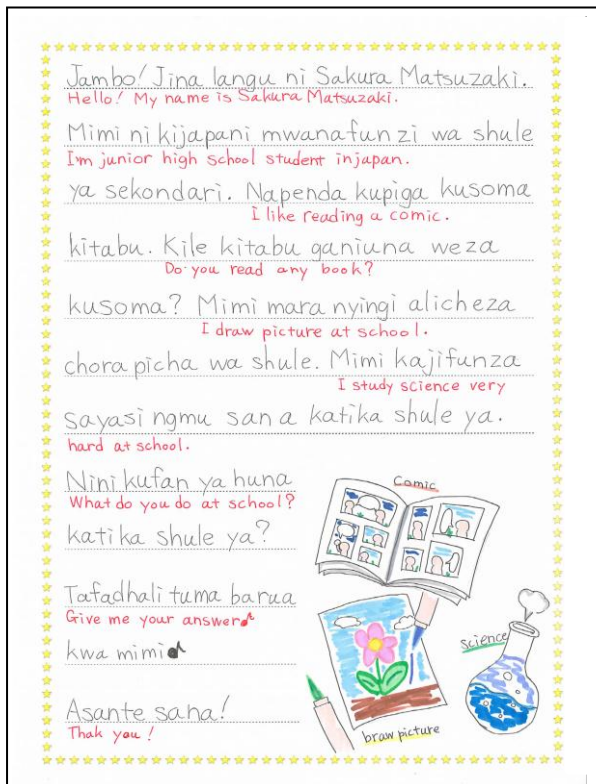 Jambo! Jina langu ni Sakura Matsuzaki.
Hello! My name is Sakura Matsuzaki.
Mimi ni kijapani mwanafun zi wa shule
I'm junior high school student in japan.
ya sekondari. Napenda kupiga kusoma
I like reading a comic.
kitabu. Kile kitabu ganiuna weza
Do you read any book?
kusoma? Mimi mara nyingi alicheza
I draw picture at school.
chora picha wa shule. Mimi kajifunza
I study science very
sayasi ngmu sana katika shule ya.
hard at school.
Nini kufan ya huna
What do you do at school?
katika shule ya?
Tafadhali tuma barua
Give me your answer♪
kwa mimi♪
Asante sana!
Thak you!
Comic
science
braw picture